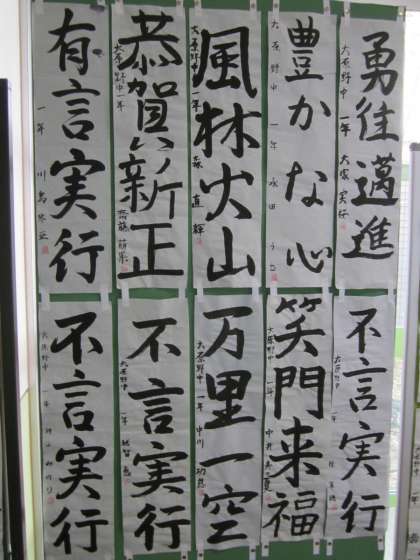 勇往邁進
大原野中 一年
豊かな心
大原野中 一年 永田
風林火山
大原野中 一年 森 直輝
恭賀新正
大原野中 一年 斎藤 萌果
有言実行
一年 川島
不言実行
大原野中 一年
笑門来福
大原野中 一年 中井
万里一空
大原野中 一年 中川
不言実行
大原野中 一年
不言実行
大原野中 一年